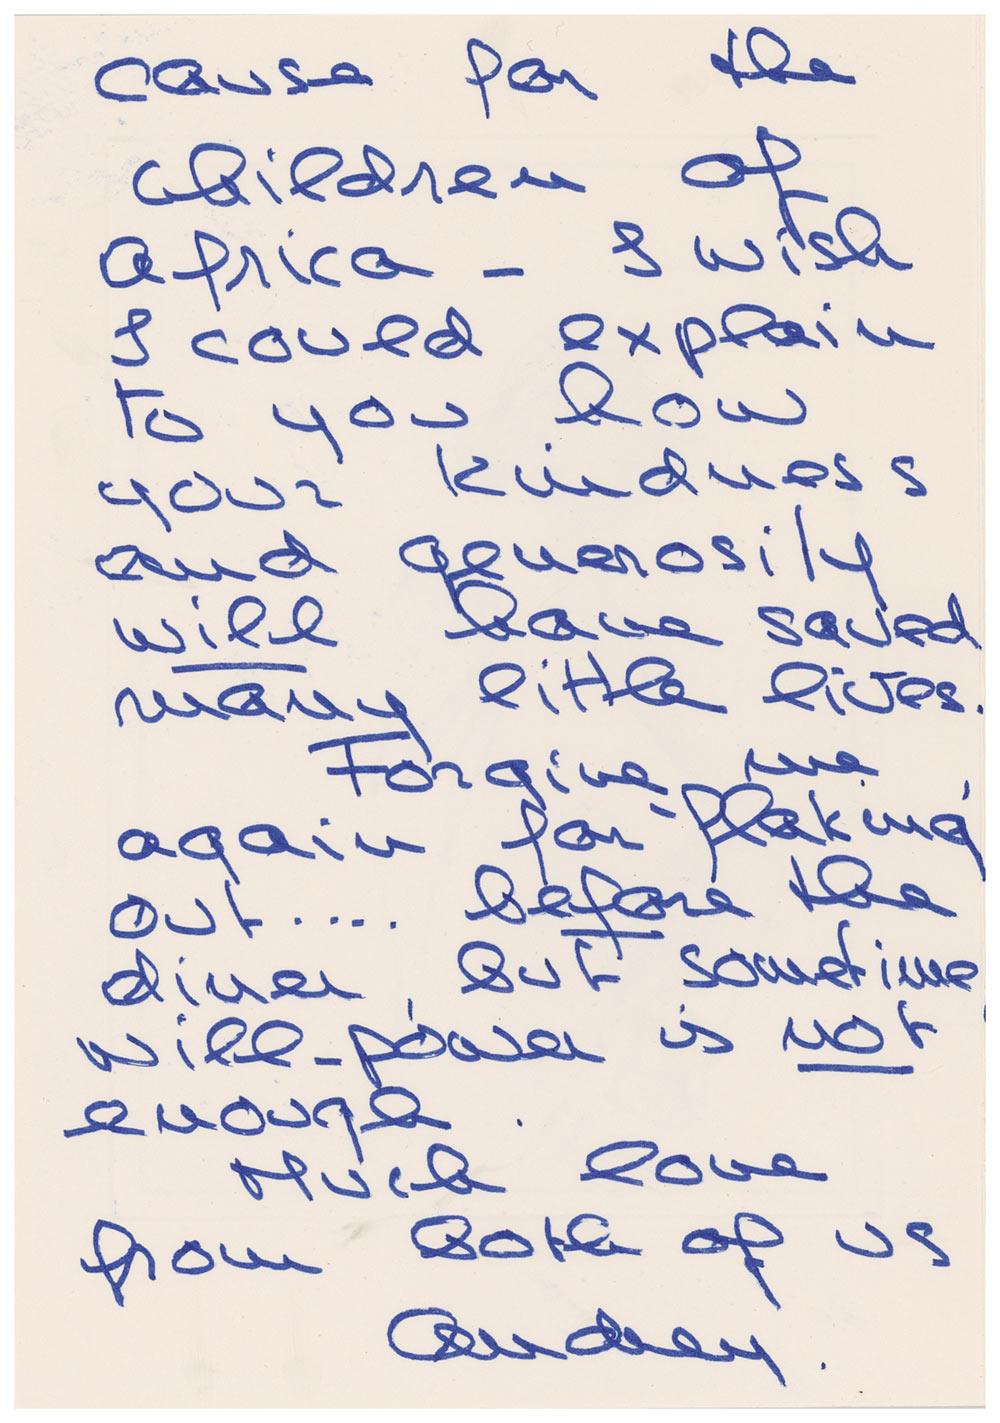 cause for the
children of
Africa - I wish
I could explain
to you how
your kindness
and generosity
will have saved
many little lives.
Forgive me
again for "flaking"
out.... before the
diner, but sometime
will-power is not
enough.
Much love
from both of us
Audrey.